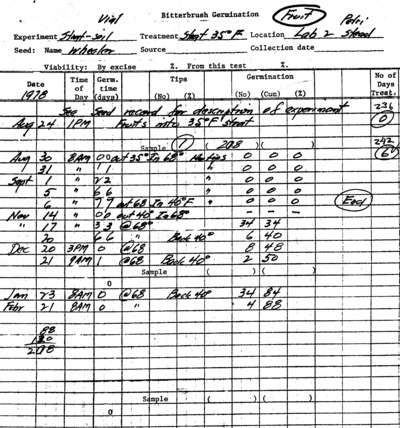 Vial Bitterbrush Germination Fruit Petri
Experiment Stant-soil Treatment Strat 35°F Location Lab 2 Strat
Seed: Name Wheeler Source Collection date
Viability: By excise %. From this test %.
Date Time of Day Germ. time (days) Tips (No) (%) Germination (No) (Cum) (%) No of Days Treat.
1978
See Seed record for description of experiment 236
Aug 24 1PM Fruits into 35°F strat 0
Sample ( 1 ) ( 208 ) ( ) 242
Aug 30 8AM 0 0 out 35° In 68° No tips 0 0 0 6
31 " 1 1 " 0 0 0
Sept 1 " 2 2 " 0 0 0
5 " 6 6 " 0 0 0
6 " 7 7 out 68 In 40°F " 0 0 0 End
Nov 14 " 0 0 out 40° In 68° - - -
" 17 " 3 3 @68° 34 34
20 " 6 6 " Back 40° 6 40
Dec 20 3PM 0 @68 8 48
21 9AM 1 @68 Back 40° 2 50
Sample ( ) ( ) ( )
0
Jan 23 8AM 0 @68 Back 40° 34 84
Febr 21 8AM 0 " 4 88
88
120
208
Sample ( ) ( ) ( )
0